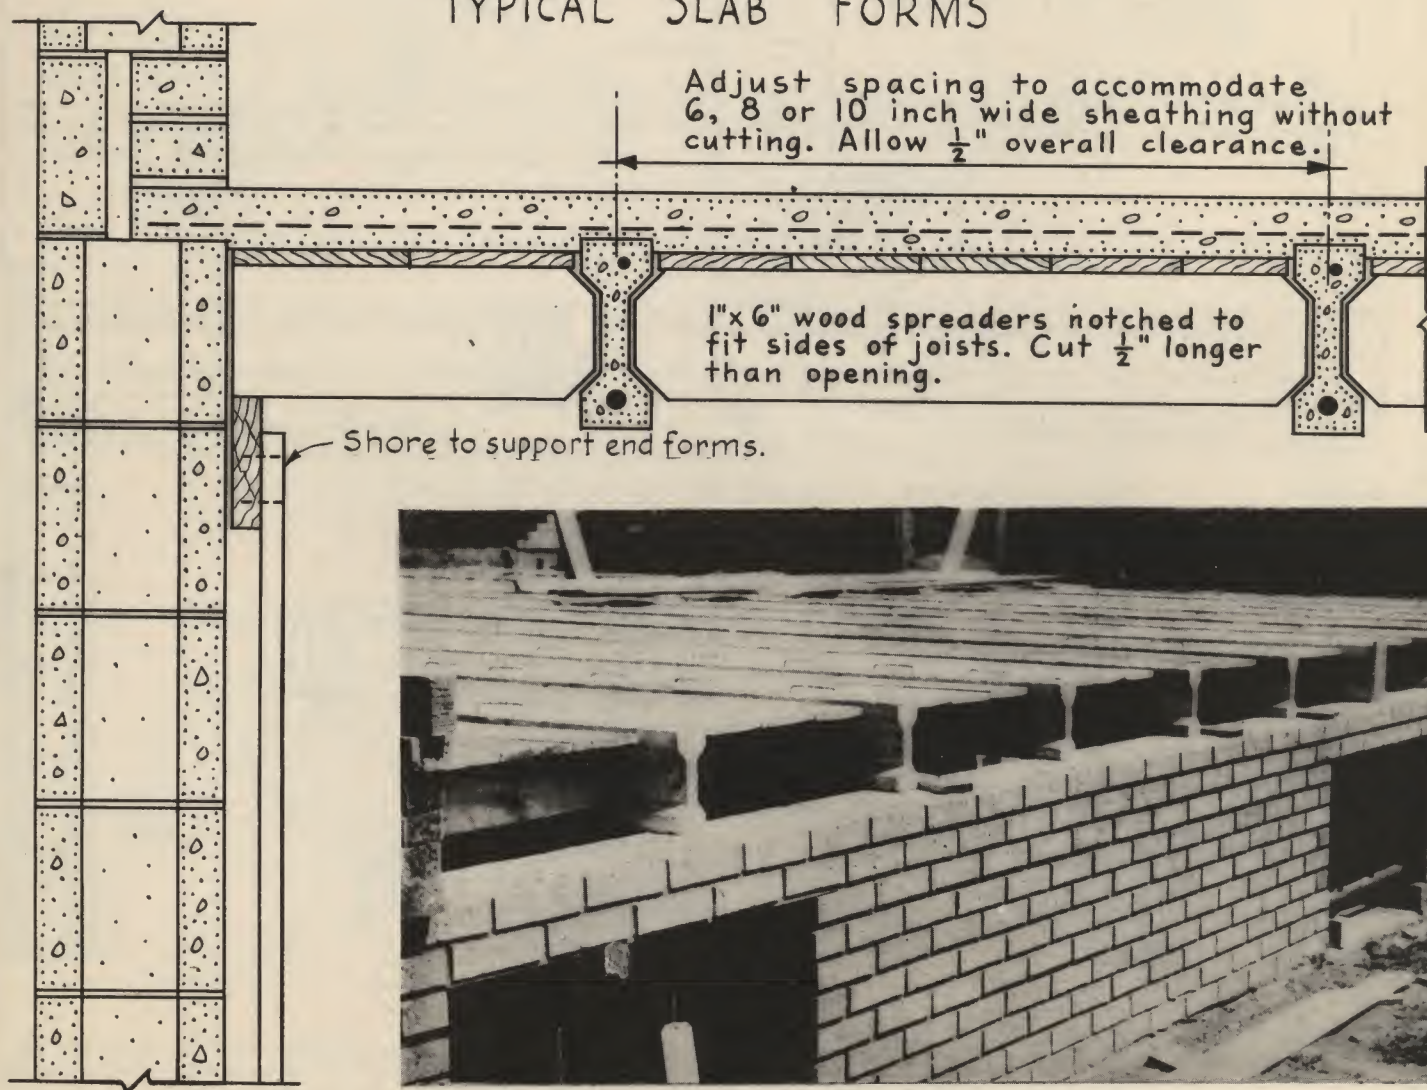 TYPICAL SLAB FORMS
Adjust spacing to accommodate
6, 8 or 10 inch wide sheathing without
cutting. Allow ½" overall clearance.
1"x 6" wood spreaders notched to
fit sides of joists. Cut ½" longer
than opening.
Shore to support end forms.